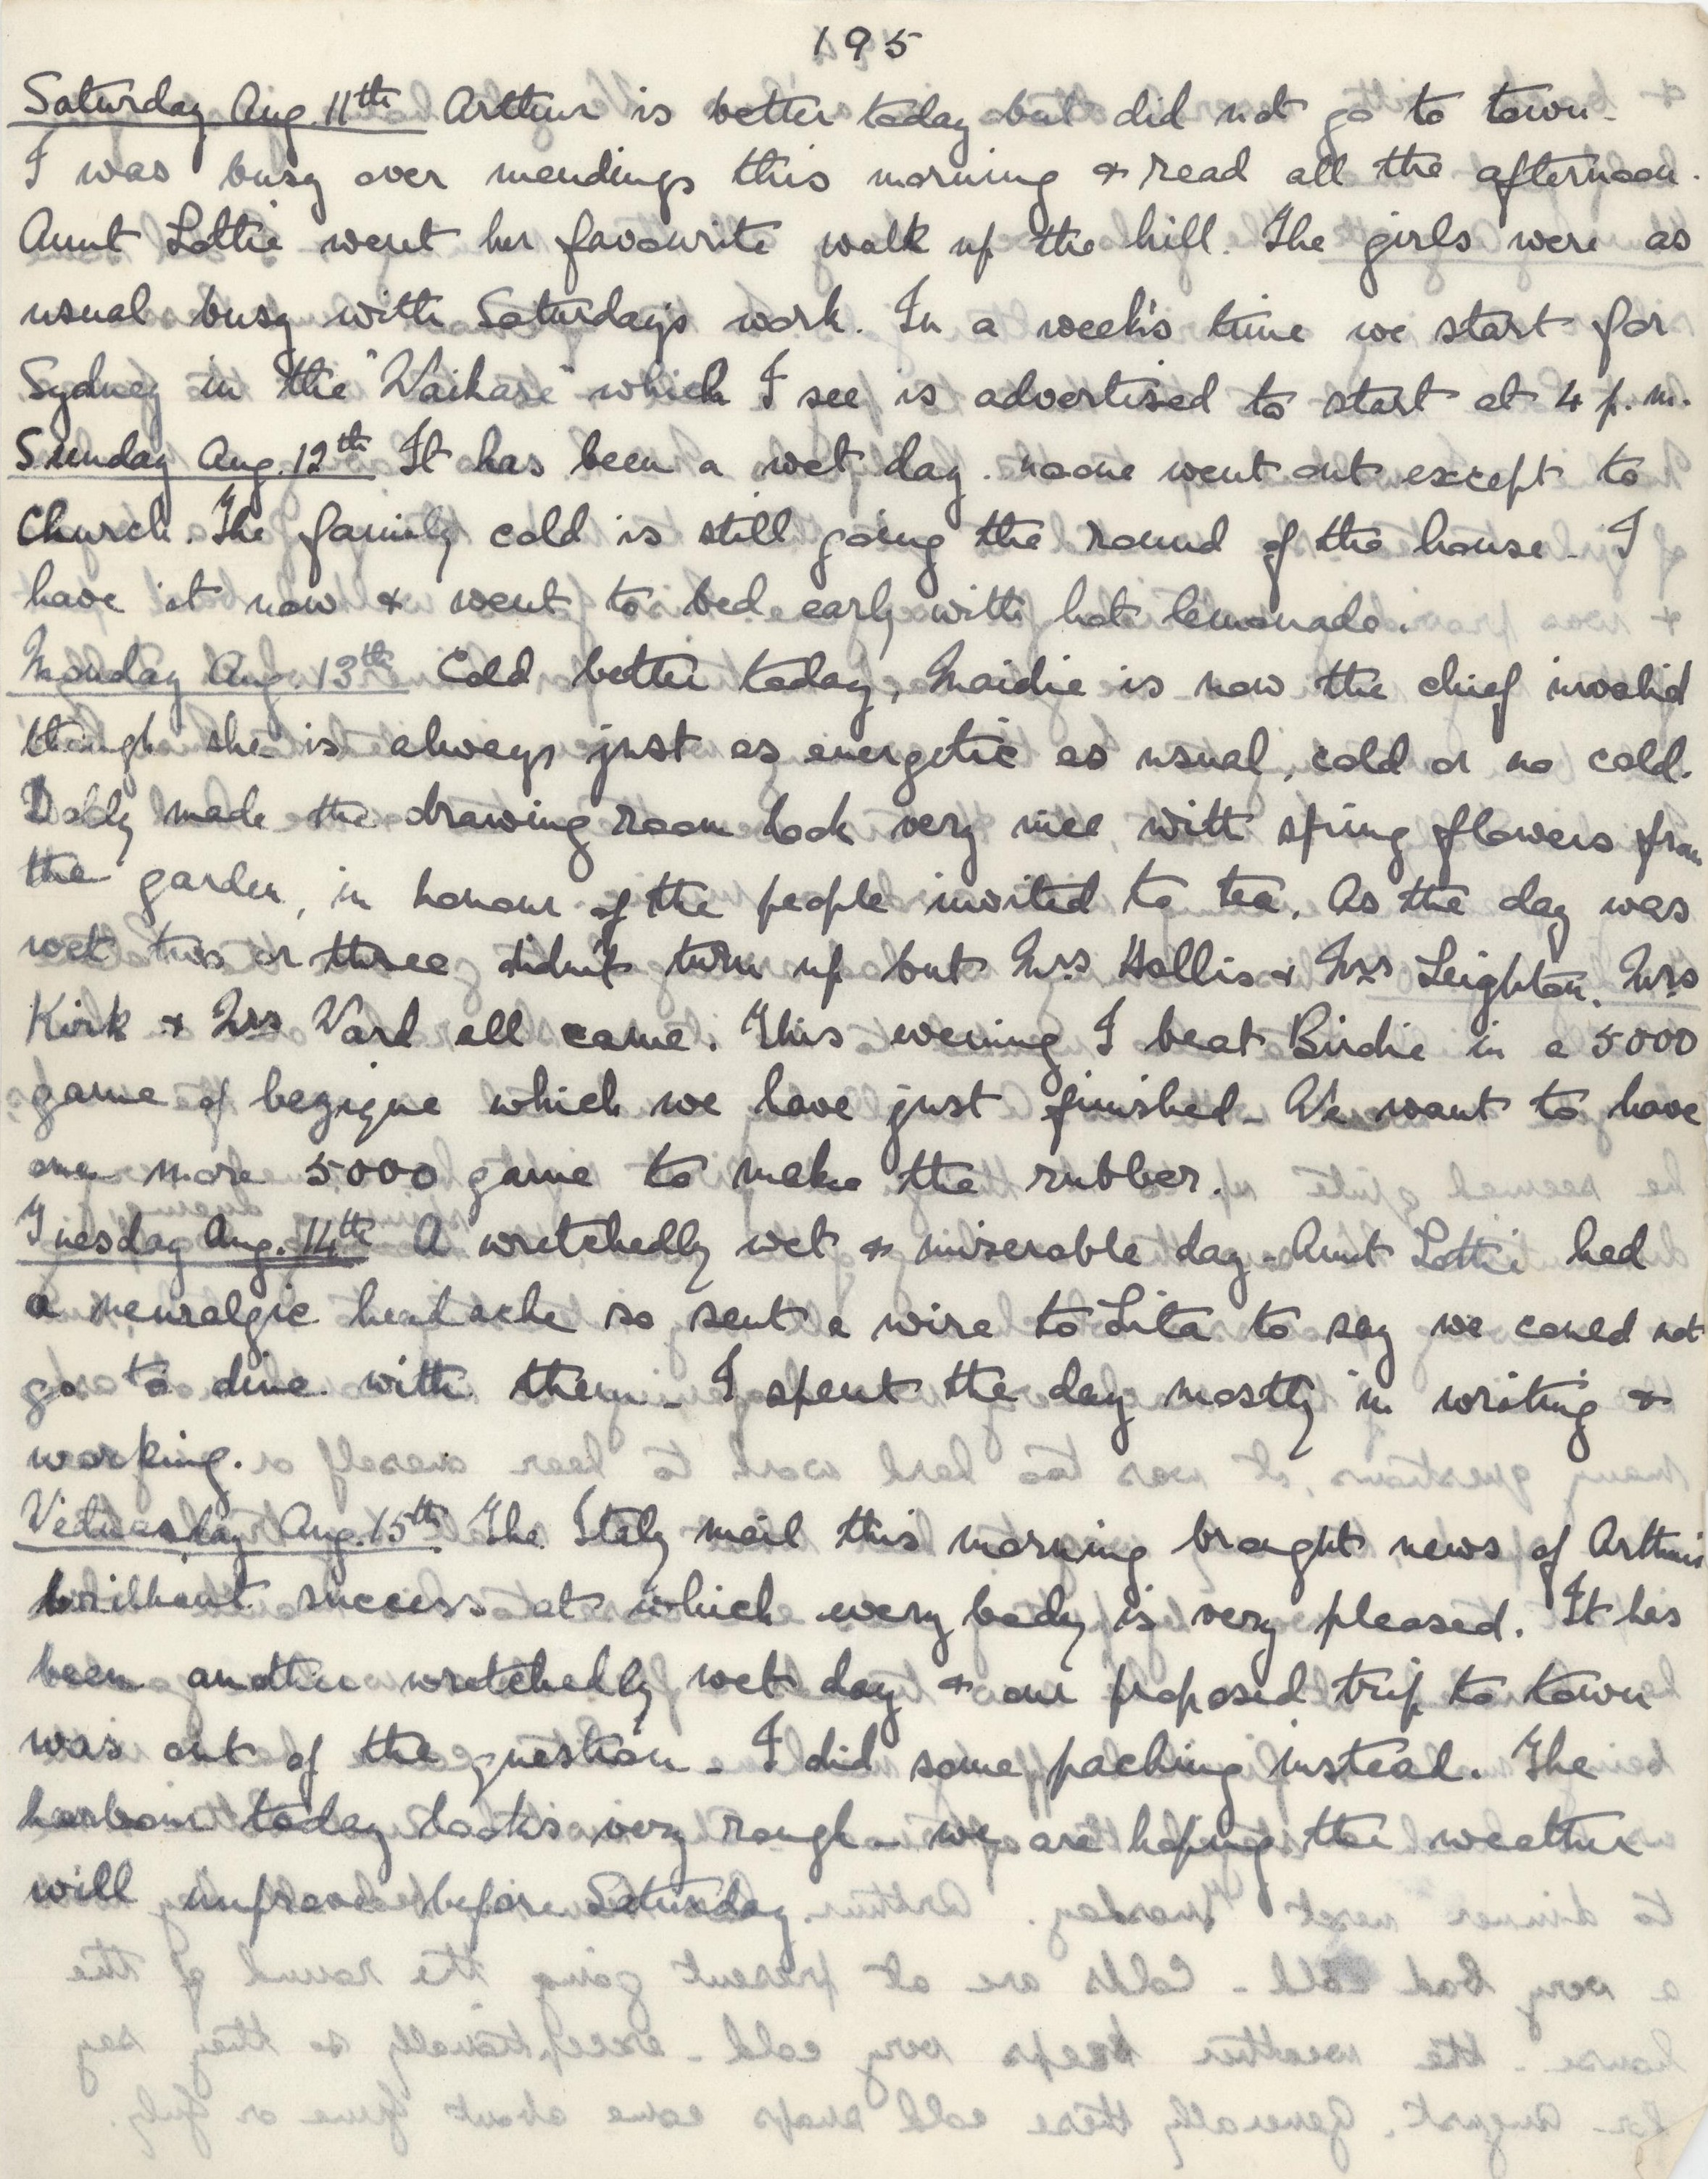 195
Saturday Aug. 11th Arthur is better today but did not go to town.
I was busy over mendings this morning & read all the afternoon.
Aunt Lottie went her favourite walk up the hill. The girls were as
usual busy with Saturday's work. In a week's time we start for
Sydney in the "Waikare" which I see is advertised to start at 4 p.m.
Sunday Aug. 12th It has been a wet day. noone went out except to
Church. The family cold is still going the round of the house - I
have it now & went to bed early with hot lemonade.
Monday Aug. 13th Cold better today, Maidie is now the chief invalid
though she is always just as energetic as usual, cold or no cold.
Dolly made the drawing room look very nice with spring flowers from
the garden, in honour of the people invited to tea. As the day was
wet two or three didn't turn up but Mrs Hollis & Mrs Leighton, Mrs
Kirk & Mrs Ward all came. This evening I beat Birdie in a 5000
game of bezique which we have just finished - We want to have
one more 5000 game to make the rubber.
Tuesday Aug. 14th A wretchedly wet & miserable day - Aunt Lottie had
a neuralgic headache so sent a wire to Lita to say we could not
go to dine with them - I spent the day mostly in writing &
working.
Wednesday Aug. 15th. The Italy mail this morning brought news of Arthur's
brilliant success at which every body is very pleased. It has
been another wretchedly wet day & our proposed trip to town
was out of the question - I did some packing instead. The
harbour today looks very rough - we are hoping the weather
will improve before Saturday.